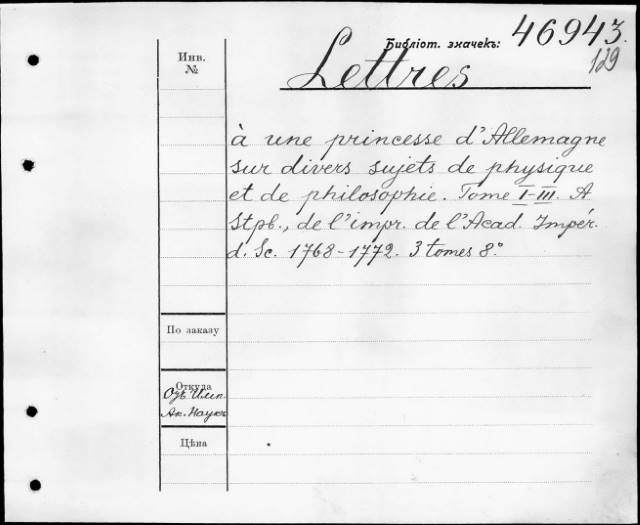 Библіот. значекъ: 46943.
129
Инв.
№
Lettres
à une princesse d'Allemagne
sur divers sujets de physique
et de philosophie. Tome I-III. A
Stpb., de l'impr. de l'Acad. Impér.
d. Sc. 1768-1772. 3 tomes 8.°
По заказу
Откуда
Отъ Имп.
Ак. Наукъ
Цѣна